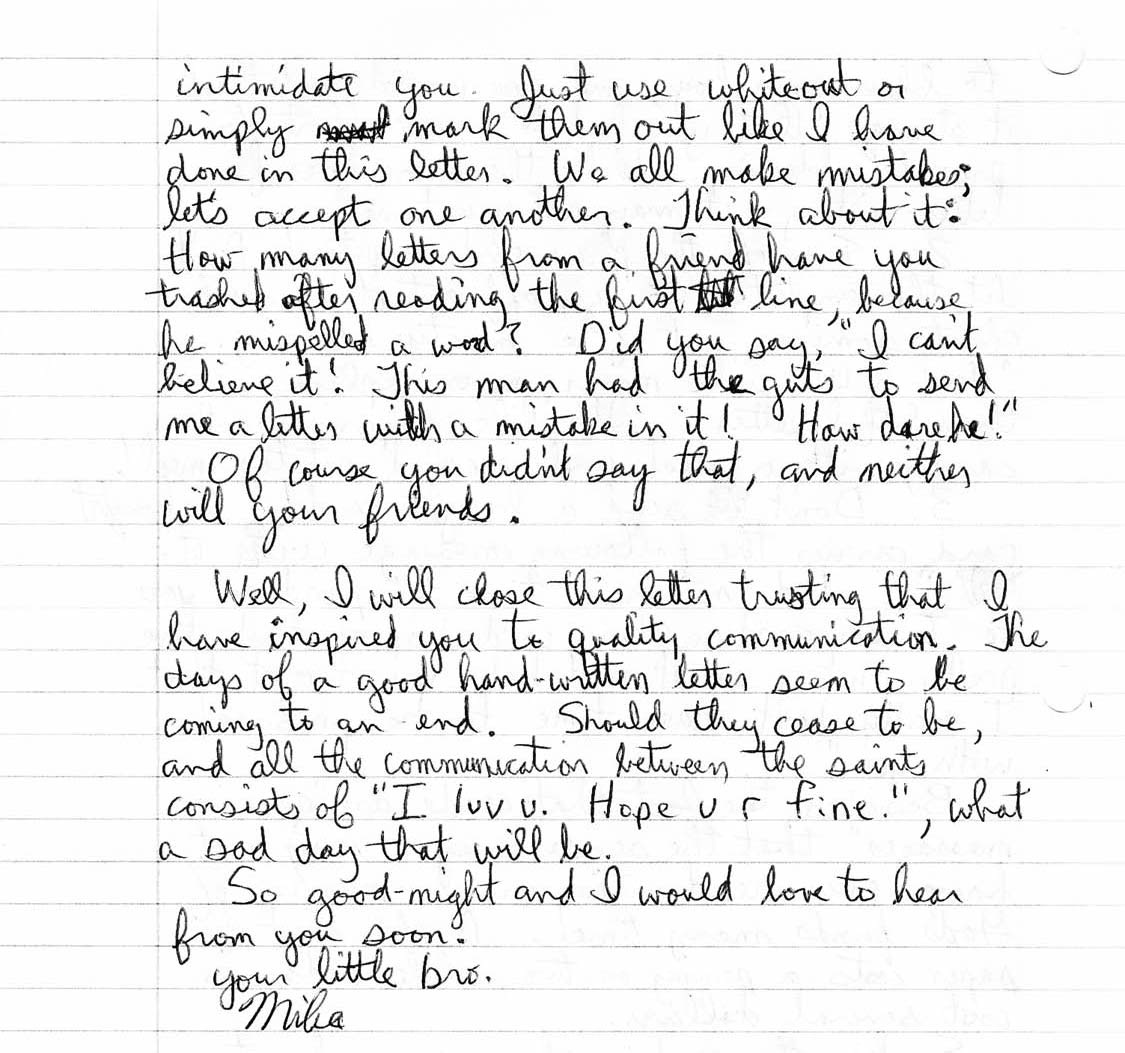 intimidate you. Just use whiteout or
simply mark them out like I have
done in this letter. We all make mistakes;
let's accept one another. Think about it:
How many letters from a friend have you
trashed after reading the first line, because
he mispelled a word? Did you say, "I can't
believe it! This man had the guts to send
me a letter with a mistake in it! How dare he!"
Of course you didn't say that, and neither
will your friends.
Well, I will close this letter trusting that I
have inspired you to quality communication. The
days of a good hand-written letter seem to be
coming to an end. Should they cease to be,
and all the communication between the saints
consists of "I luv u. Hope u r fine.", what
a sad day that will be.
So good-night and I would love to hear
from you soon.
your little bro.